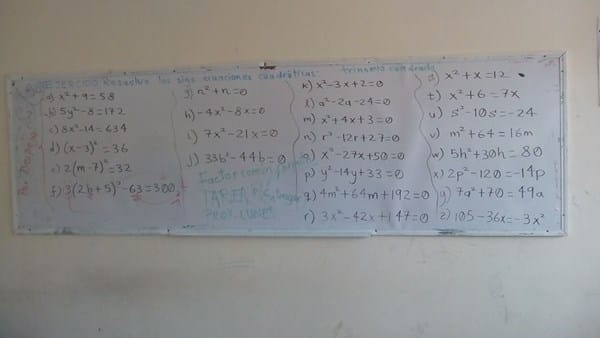 EJERCICIO Resuelve las sigs ecuaciones cuadráticas:
a) x²+9=58
b) 5y²-8=172
c) 8x²-14=634
d) (x-3)²=36
e) 2(m-7)²=32
f) 3(2b+5)²-63=300
g) n²+n=0
h) -4x²-8x=0
i) 7x²-21x=0
j) 33b²-44b=0
Factor común
TAREA P/
PROX. LUNES
trinomio cuadrado
k) x²-3x+2=0
l) a²-2a-24=0
m) x²+4x+3=0
n) r²-12r+27=0
o) x²-27x+50=0
p) y²-14y+33=0
q) 4m²+64m+192=0
r) 3x²-42x+147=0
s) x²+x=12
t) x²+6=7x
u) s²-10s=-24
v) m²+64=16m
w) 5h²+30h=80
x) 2p²-120=-14p
y) 7a²+70=49a
z) 105-36x=-3x²